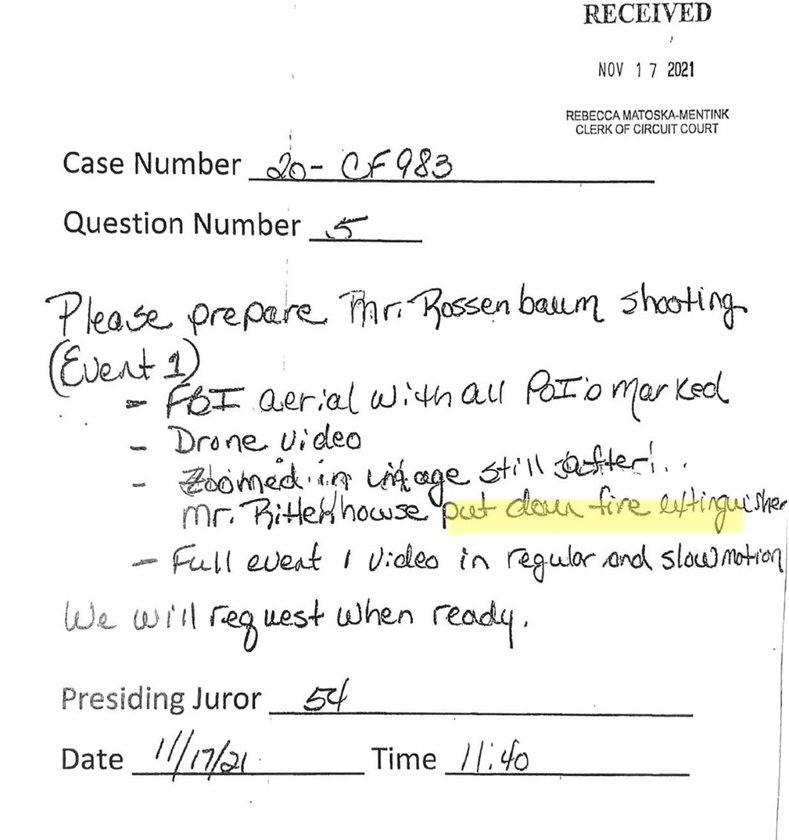 RECEIVED
NOV 17 2021
REBECCA MATOSKA-MENTINK
CLERK OF CIRCUIT COURT
Case Number 20-CF983
Question Number 5
Please prepare Mr. Rossenbaum shooting
(Event 1)
- FBI aerial with all PoI's marked
- Drone video
- Zoomed in image still after...
Mr. Rittenhouse put down fire extinguisher
- Full event 1 video in regular and slow motion
We will request when ready.
Presiding Juror 54
Date 11/17/21 Time 11:40